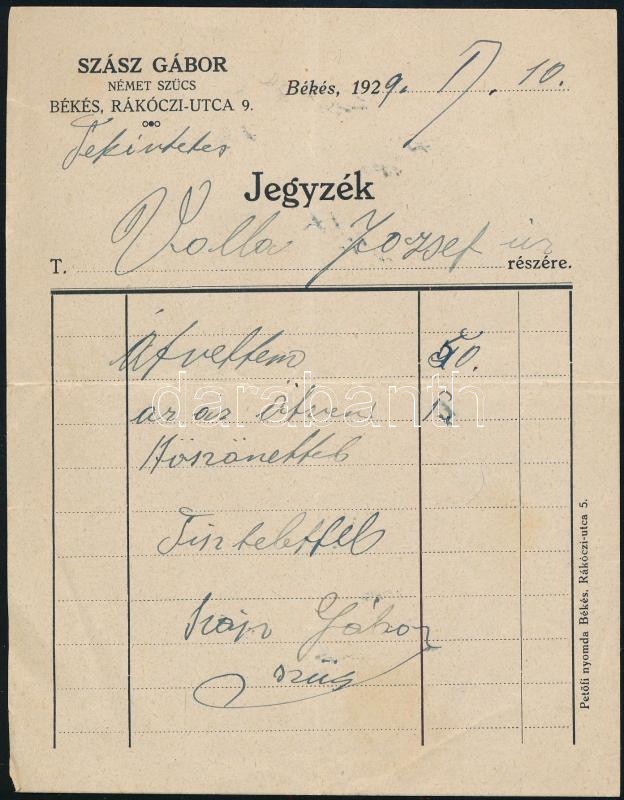 SZÁSZ GÁBOR
NÉMET SZÜCS
BÉKÉS, RÁKÓCZI-UTCA 9.
Békés, 1929. I. 10.
Tekintetes
Jegyzék
T. Volla Jozsef úr részére.
Átvettem 50.
az az ötven
Köszönettel
Tisztelettel
Szász Gábor
szűcs
Petőfi nyomda Békés, Rákóczi-utca 5.
darabanth